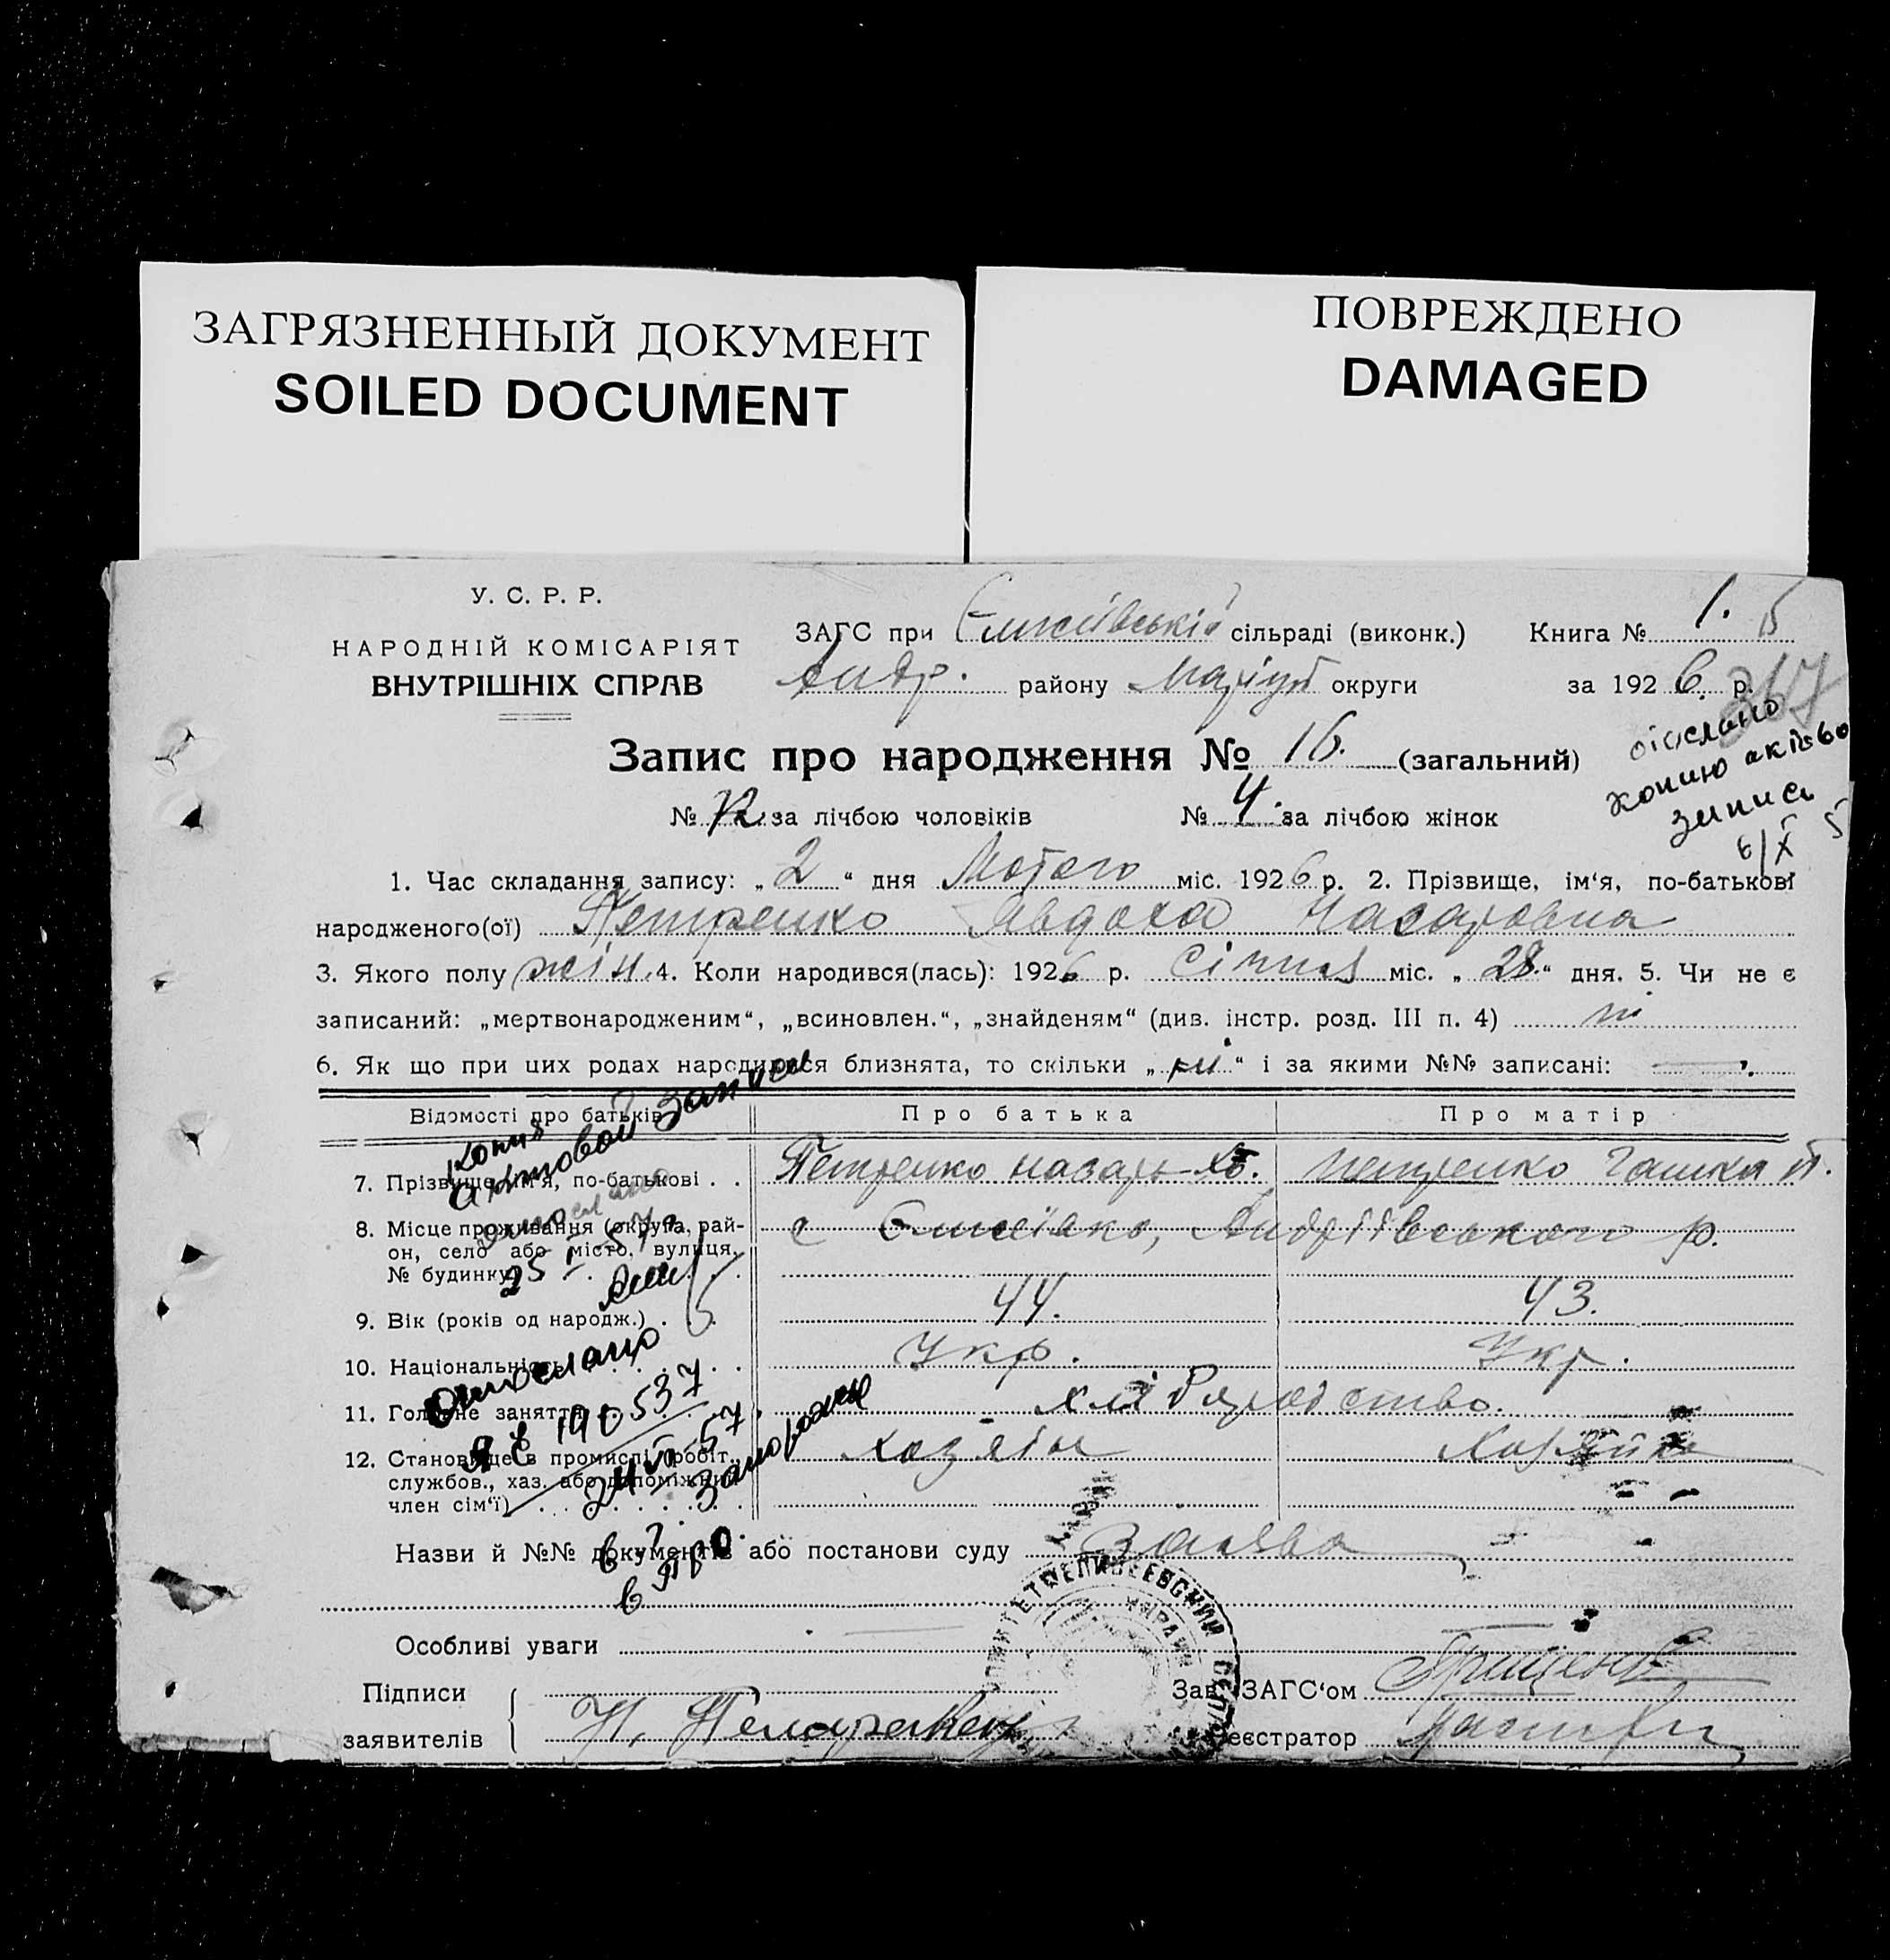 ЗАГРЯЗНЕННЫЙ ДОКУМЕНТ
SOILED DOCUMENT
ПОВРЕЖДЕНО
DAMAGED
У. С. Р. Р.
НАРОДНІЙ КОМІСАРІЯТ
ВНУТРІШНІХ СПРАВ
ЗАГС при Єлисеївській сільраді (виконк.) Книга № 1.
Андр. району Маріуп округи за 1926 р.
267
Запис про народження № 16. (загальний)
№ за лічбою чоловіків № 4. за лічбою жінок
копию
запись
1. Час складання запису: „2“ дня Лютого міс. 1926 р. 2. Прізвище, ім‘я, по-батькові
народженого(ої) Петренко Явдоха Назаровна
3. Якого полу жін. 4. Коли народився(лась): 1926 р. Січня міс. „28.“ дня. 5. Чи не є
записаний: „мертвонародженим“, „всиновлен.“, „знайденям“ (див. інстр. розд. III п. 4) ні
6. Як що при цих родах народилися близнята, то скільки „ні“ і за якими №№ записані: —
Відомості про батьків Про батька Про матір
копия
актовой записи
7. Прізвище, ім‘я, по-батькові . . Петренко Назарь Петренко Гашка
8. Місце проживання (округа, рай-
он, село або місто, вулиця,
№ будинку)
с Єлисеївка, Андріївського р.
9. Вік (років од народж.) . . . 44. 43.
10. Національність . . . Укр. Укр.
11. Головне заняття хліборобство.
12. Становище в промислі (робіт.,
службов., хаз. або допоміжний
член сім‘ї)
хозяїн Хозяйка
отослано
190537
Запорожье
Назви й №№ документів або постанови суду Заява
Особливі уваги —
Підписи
заявителів
Н. Петренко
Зав. ЗАГС‘ом Грищенко
Реєстратор
ЕЛИСЕЕВСКИЙ